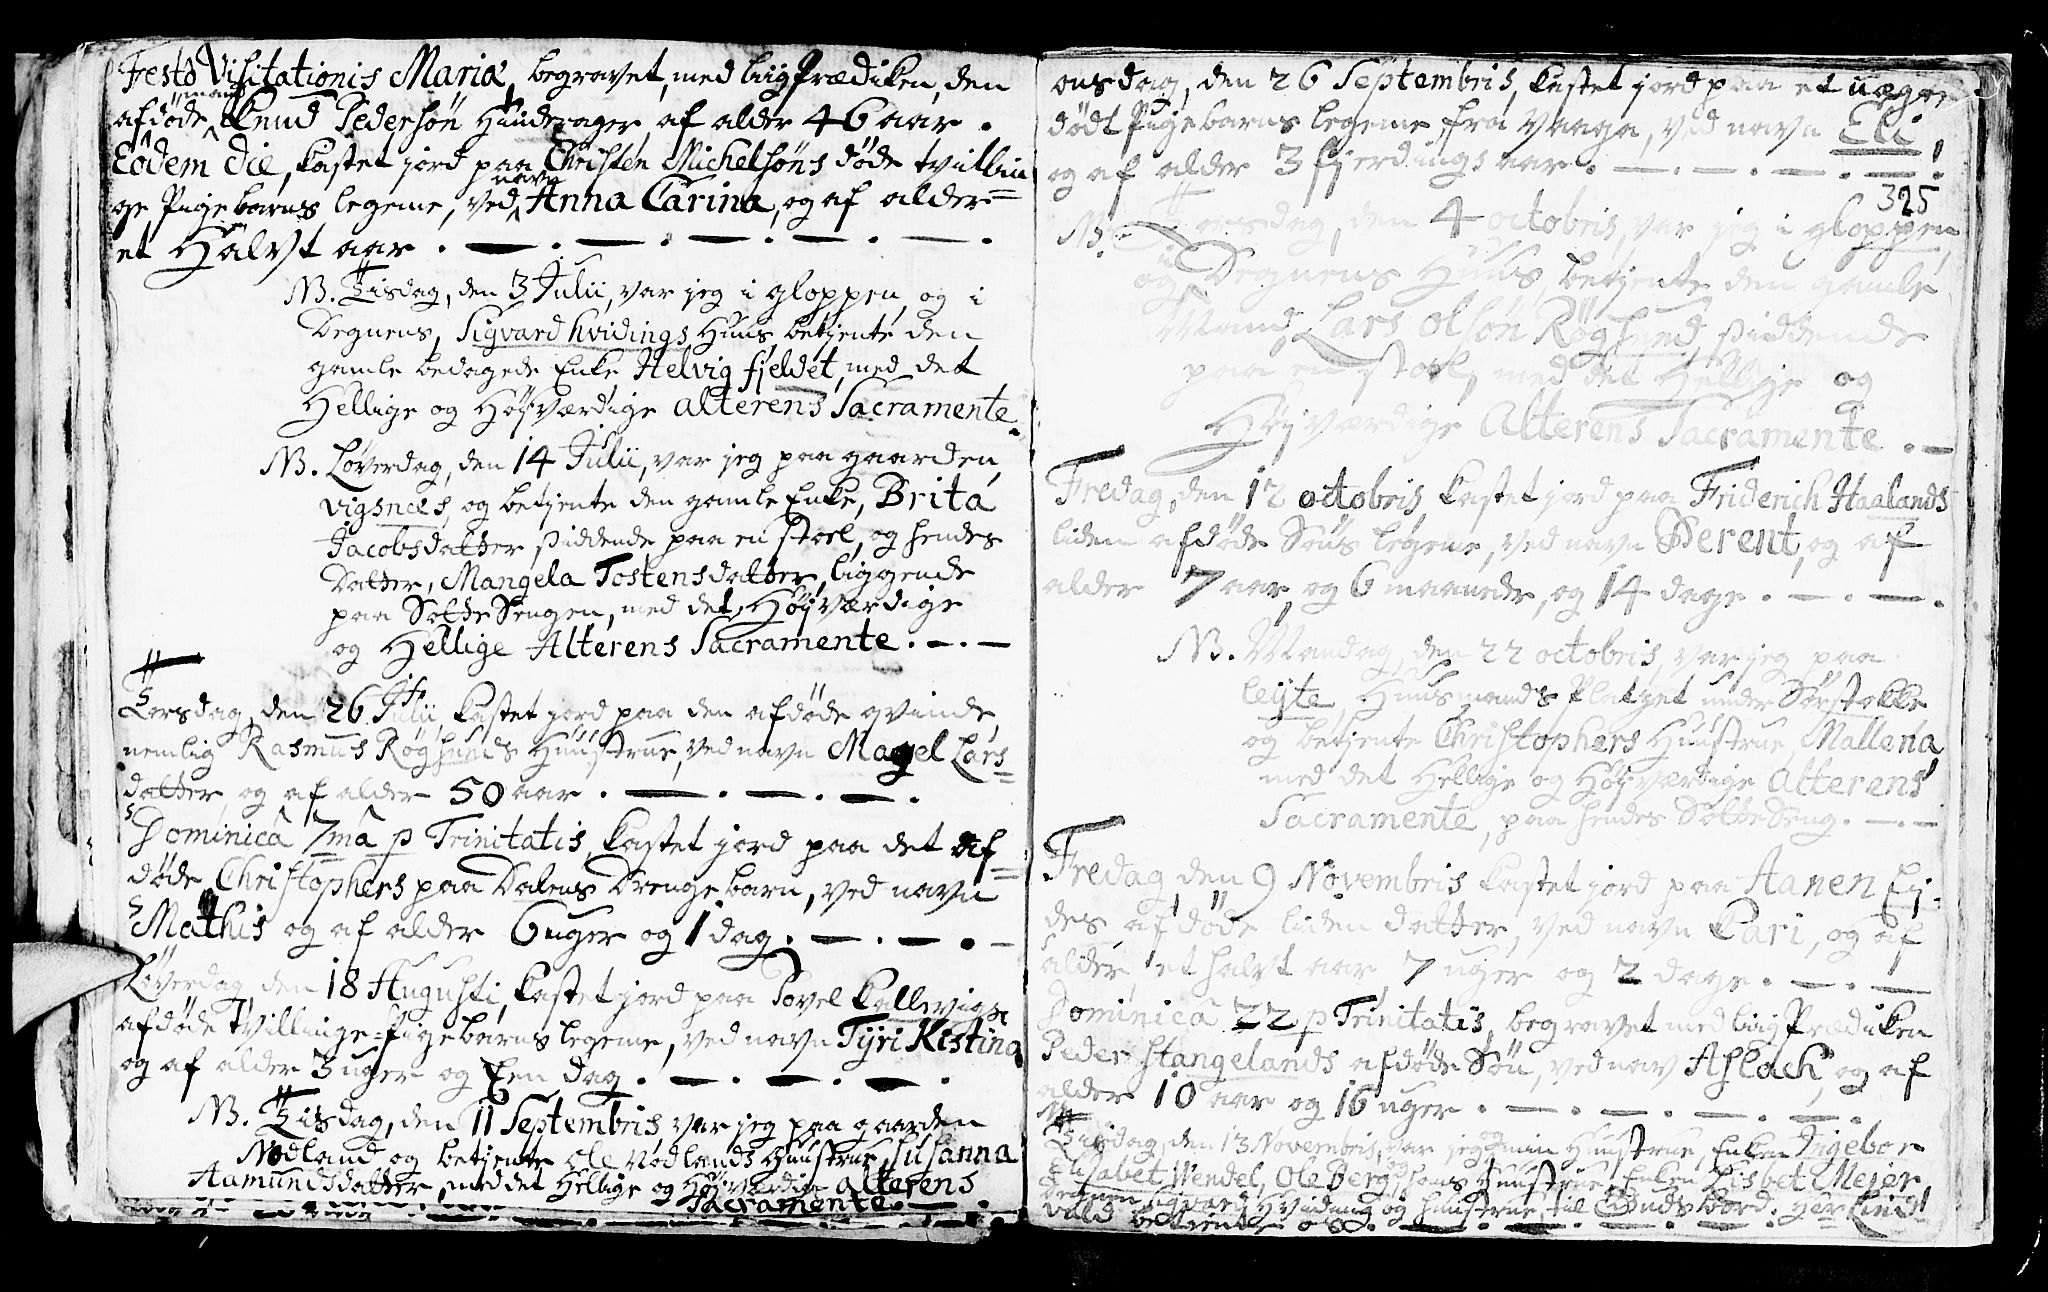 Festo Visitationis Mariæ, begravet, med liig Prædiken, den
afdöde mand Knud Pedersön Hunderager, af alder 46 aar.
Eôdem die, kastet jord paa Christen Michelsöns döde tvillin
ge Pige barns legeme, ved navn Anna Carina, og af alder=
et Halvt aar . — . — . — . — . — .
NB. Tisdag, den 3 Julii, var jeg i gloppen, og i
Degnens, Sigvard Hvidings Huus, betjente den
gamle bedagede Enke Helvig fjeldet, med det
Hellige og Höjværdige alterens Sacramente.
NB. Löverdag, den 14 Julii, var jeg paa gaarden
vigsnes, og betjente den gamle Enke, Brita
Jacobsdatter siddende paa en stoel, og hendes
Datter, Mangela Tostensdatter, liggende
paa Sotte Sengen, med det Höjværdige
og Hellige Alterens Sacramente . — . —
Torsdag, den 26 Julii, kastet jord paa den afdöde qvinde
nemlig Rasmus Röghunds Huustrue, ved navn Magel Lars=
datter, og af alder 50 aar . — . — . — .
Dominicâ 7mâ p Trinitatis, kastet jord paa det af=
döde Christophers paa Dalens Drenge barn, ved navn
Mathis og af alder 6 uger og 1 dag . — . — . —
Löverdag den 18 Augusti, kastet jord paa Povel Kallevigs
afdöde tvillinge=Pige barns legeme, ved navn Tyri Kistina
og af alder 3 uger og Een dag . — . — . — .
NB. Tisdag, den 11 Septembris, var jeg paa gaarden
Nodland og betjente Ole Nodlands Huustrue, Susanna
Aamundsdatter, med det Hellige og Höjværdige alterens
Sacramente. — .
onsdag, den 26 Septembris, kastet jord paa et uægte
dödt Pige barns legeme, fra Vaaga, ved navn Eli,
og af alder 3 fjerdings aar . — . — . — . — .
325
NB. Torsdag, den 4 octobris, var jeg i gloppen,
og i Degnens Huus, betjente den gamle
Mand, Lars Olson Röghund, siddende
paa en stoel, med det Hellige og
Höjværdige Alterens Sacramente . —
Fredag, den 12 octobris, kastet jord paa Friderich Haalands
liden afdöde Söns legeme, ved navn Berent, og af
alder 7 aar, og 6 maaneder, og 14 dage . — . — .
NB. Mandag, den 22 octobris, var jeg paa
leyte, Huusmands Pladset under Sörstokke
og betjente Christophers Huustrue, Mallena,
med det Hellige og Höjværdige Alterens
Sacramente, paa hendes Sotte Seng. — . —
Fredag, den 9 Novembris kastet jord paa Aanen Ey=
des afdöde liden datter, ved navn Kari, og af
alder, et halvt aar, 7 uger og 2 dage . — . —
Dominicâ 22 p Trinitatis, begravet med liig Prædiken
Peder stangelands afdöde Sön, ved nav Aslach, og af
alder 10 aar og 16 uger . — . — . — . — .
NB. Tisdag, den 13 Novembris, var jeg og min Huustrue, Enken Ingebor
Elisabet Wendel, Ole Berg, og hans Huustrue, Enken Lisbet Mejer,
Degnen Sigvard Hviding og huustrue, til Guds bord. Her Lind=
vald betjente os. — . — . — . — . — .